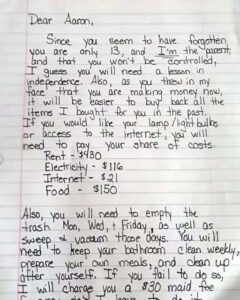 Dear Aaron,
Since you seem to have forgotten
you are only 13, and I'm the parent,
and that you won't be controlled,
I guess you will need a lesson in
independence. Also, as you threw in my
face that you are making money now,
it will be easier to buy back all the
items I bought for you in the past.
If you would like your lamp/light bulbs
or access to the internet, you will
need to pay your share of costs.
Rent - $430
Electricity - $116
Internet - $21
Food - $150
Also, you will need to empty the
trash Mon, Wed, + Friday, as well as
sweep + vacuum those days. You will
need to keep your bathroom clean weekly,
prepare your own meals, and clean up
after yourself. If you fail to do so,
I will charge you a $30 maid fee